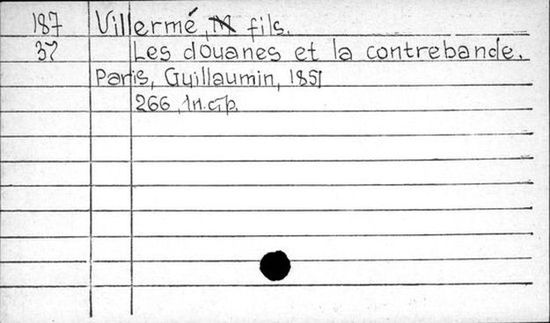 187 Villermé, fils.
37 Les douanes et la contrebande.
Paris, Guillaumin, 1851
266, 1n.c.p.